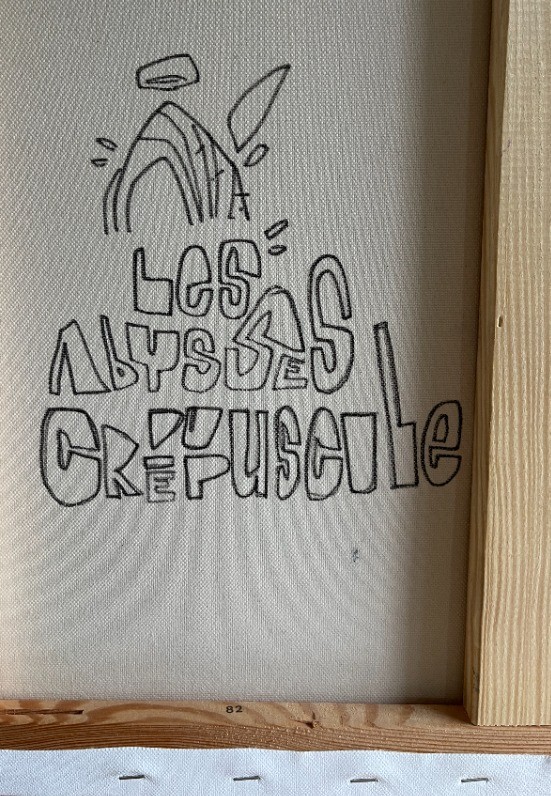 Les
AbYSSES
CRÉPUSCULe
82